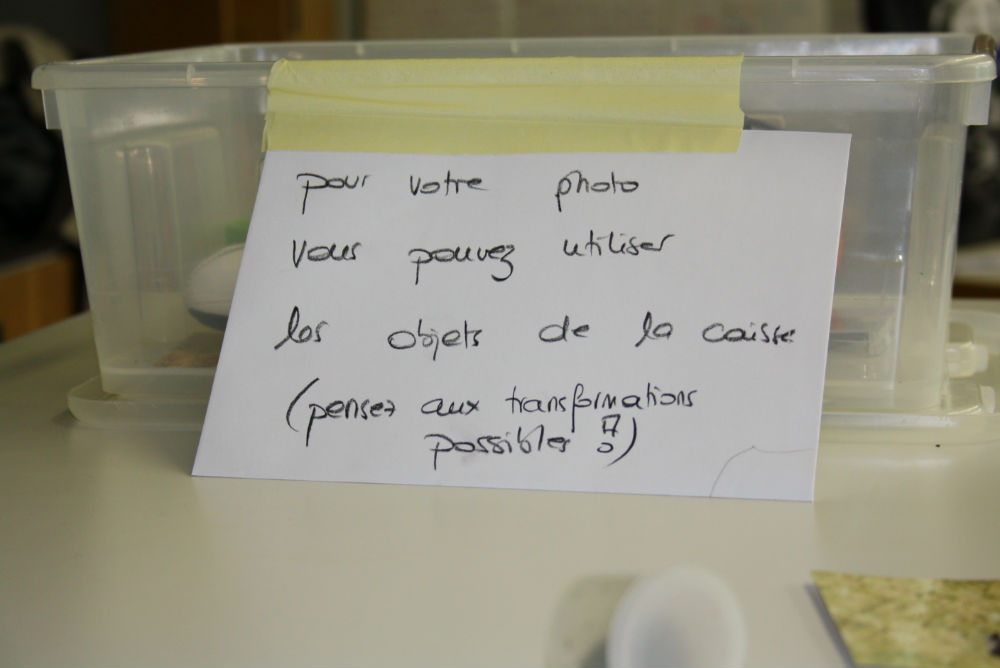 pour votre photo
vous pouvez utiliser
les objets de la caisse
(pensez aux transformations
possibles !)